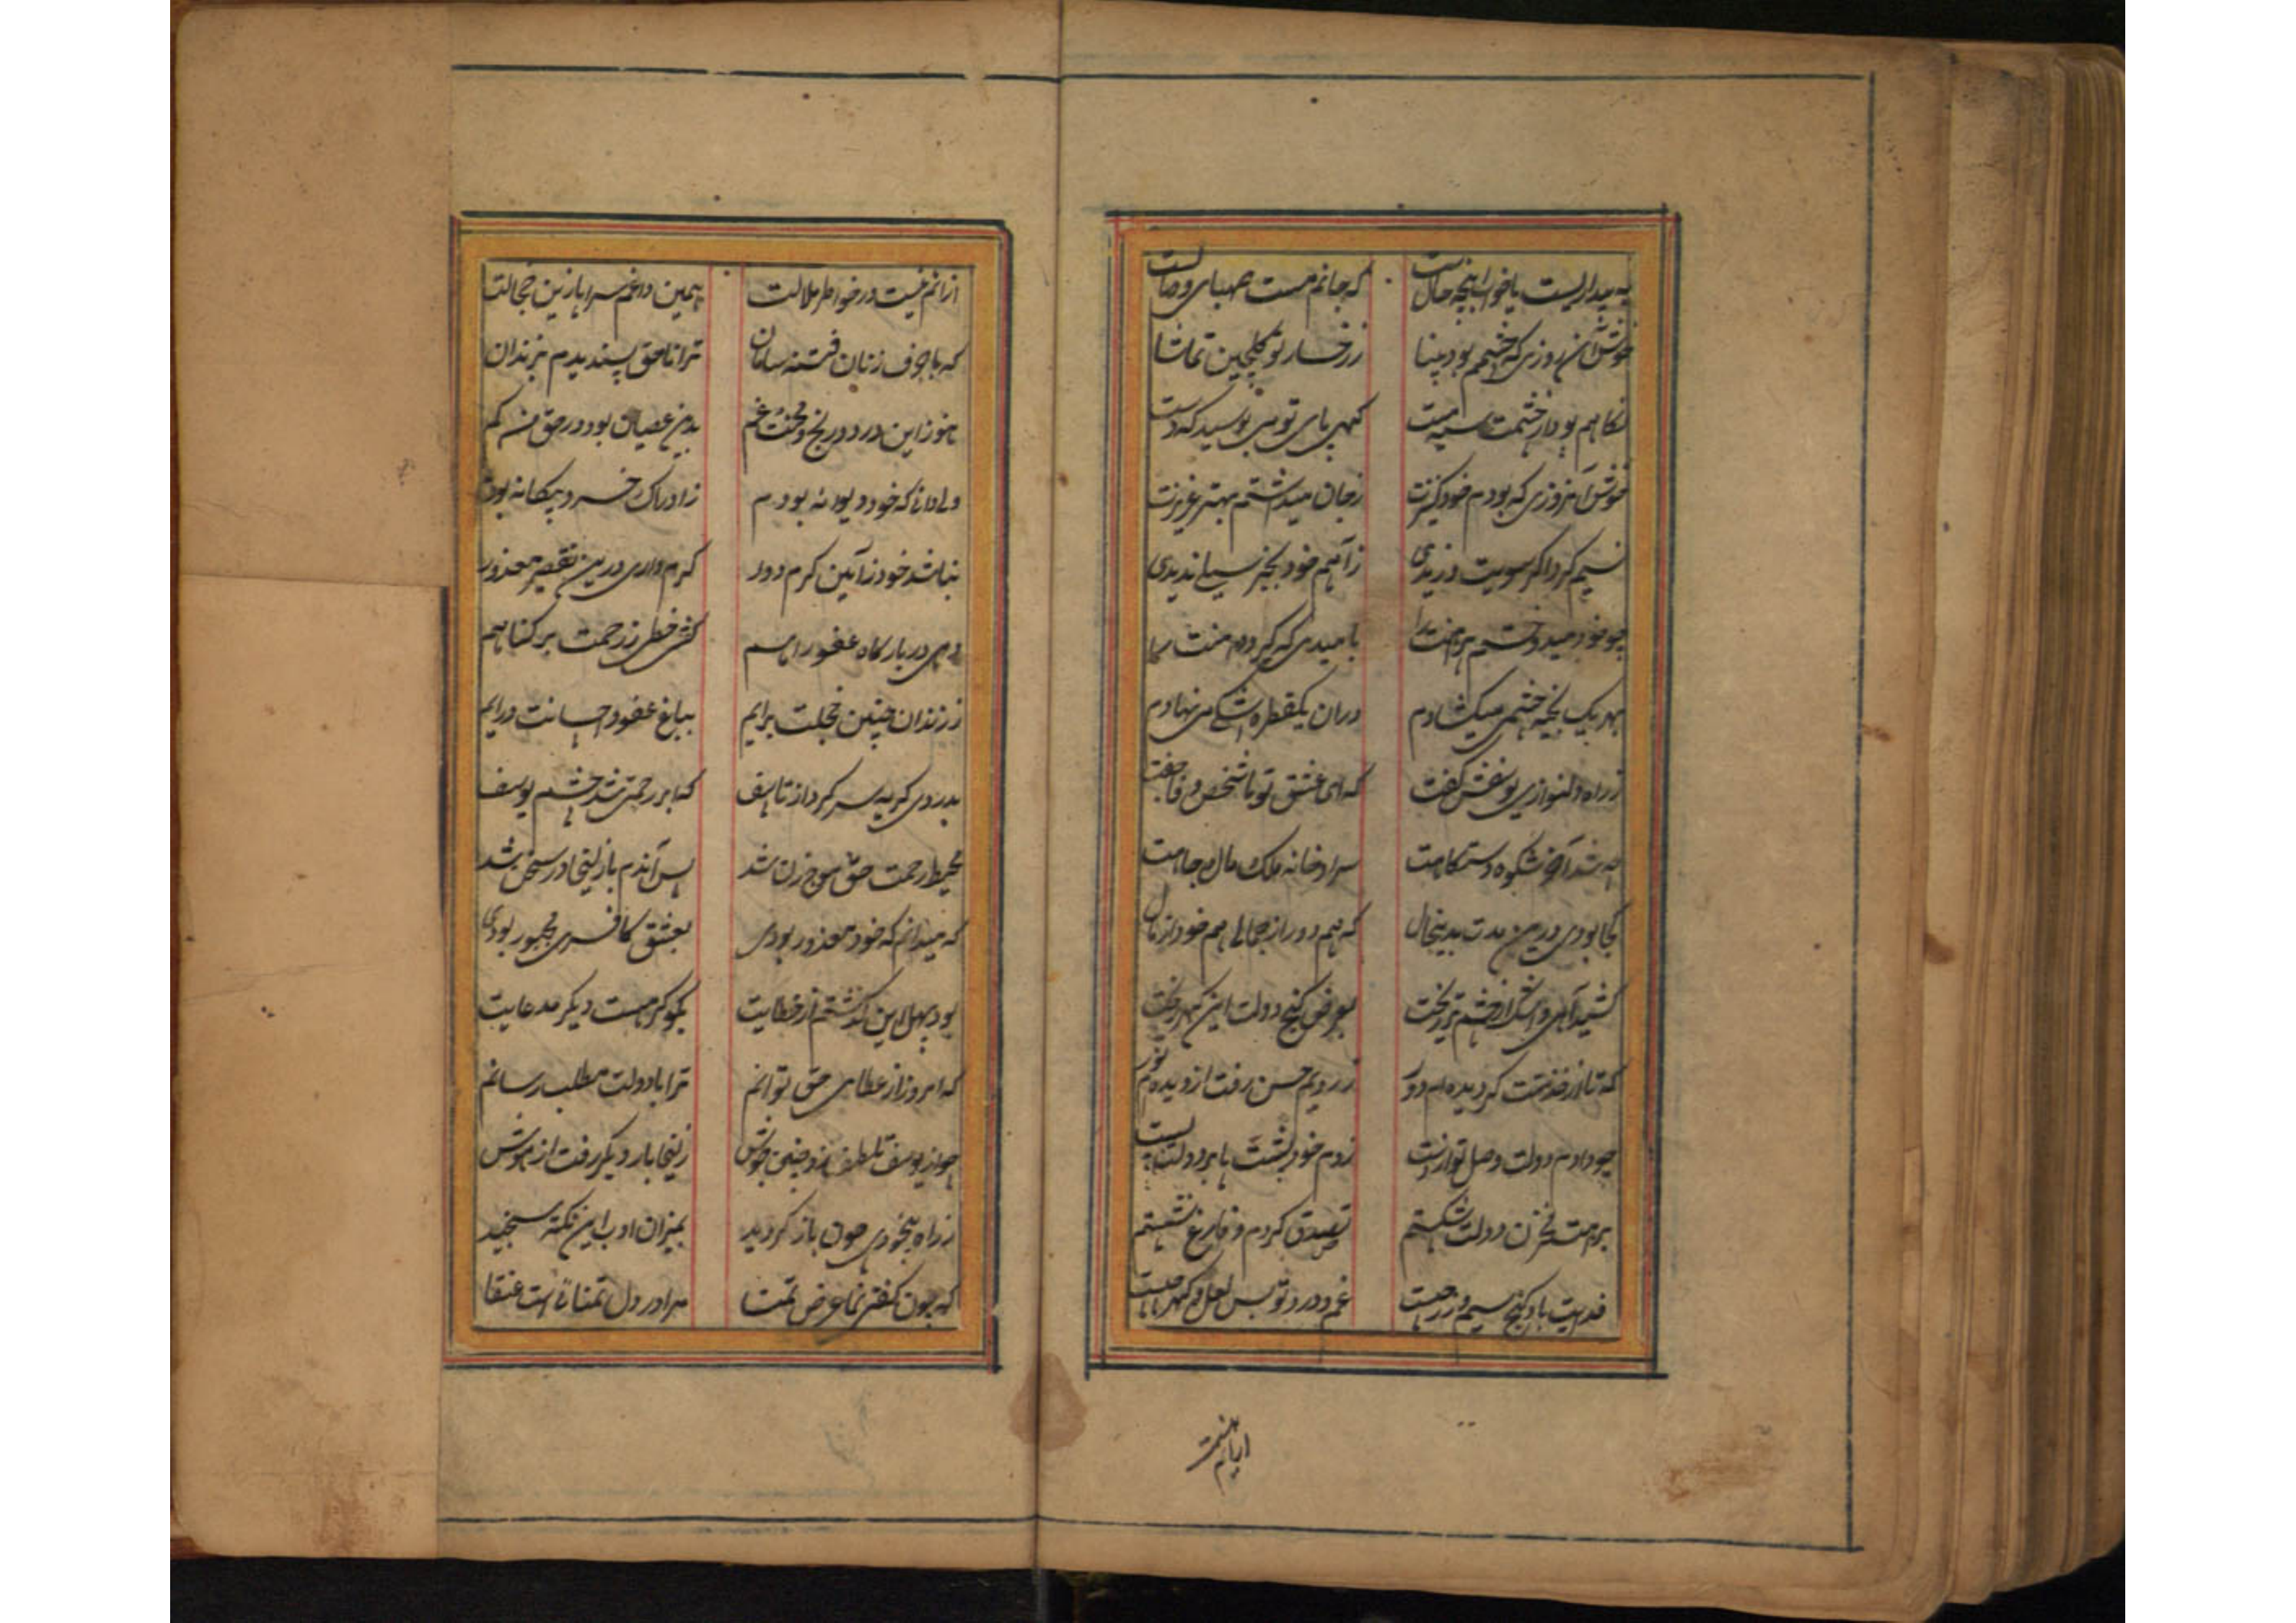 چه بیداریست یا خوابنچه حالست که جانم مست صهبای وصالست
خوش آن روزی که چشمم بود بینا ز رخسار تو گلچین تماشا
نکاهم بود از چشمت سیه مست کهی پای تو می بوسید که دست
خوش آنروزی که بودم خود کنیزت ز جان میداشتم بهتر عزیزت
نسیم کرد اکر سویت وزیدی ز آهم خود بجز سیلی ندیدی
چو خود میدوختم پیراهنت را بامیدی که کیرد دامنت را
بهر یک بخیه چشمی میکشادم دران یکقطره اشکی می نهادم
ز راه دلنوازی یوسفش کفت که ای عشق تو با شخص وفا جفت
چه شد آخر شکوه دستکاهت سرا و خانه ملک مال و جاهت
کجا بودی درین مدت بدینحال که هم دور از جمالی هم خود از مال
کشید آهی و اشک از چشم تر ریخت بعرض کنج دولت این کهر ریخت
که تا از خدمتت کردیده ام دور ز رویم حسن رفت از دیده ام نور
چو دادم دولت وصل تو از دست زدم خود پشت پا بر دولت پست
براهت مخزن دولت شکستم تصدق کردم و فارغ نشستم
فدایت باد کنج سیم و زر جست غم و درد تو بس لعل و کهر
ازانم نیست در خواطر ملالت همین داغم سراپا زین خجالت
که با حرف زنان فتنه سامان ترا ناحق پسندیدم بزندان
هنوز این درد و رنج و محنت غم بدین عصیان بود در حق من کم
ولی دانا که خود دیوانه بودم ز ادراک خرد بیکانه بودم
نباشد خود ز آیین کرم دور کرم داری درین تقصیر معذور
دهی در بارکاه عفو راهم کشی خطی ز رحمت بر کناهم
ز زندان چنین خجلت برایم بباغ عفو و احسانت درایم
بدردی کریه سر کرد از تاسف که ابر رحمتی شد چشم یوسف
محیط رحمت حق موج زن شد پس آندم با زلیخا در سخن شد
که میدانم که خود معذور بودی بعشق کافری مجبور بودی
بود بهل این کذشتم از خطایت بکو کر هست دیکر مدعایت
که امروز از عطای حق توانم ترا با دولت مطلب رسانم
چو از یوسف تلطف زد چنین جوش زلیخا بار دیکر رفت از هوش
ز راه بیخودی چون باز کردید بمیزان ادب این نکته سنجید
که چون کفتی نما عرض تمنا مرا در دل تمنائی است عنقا